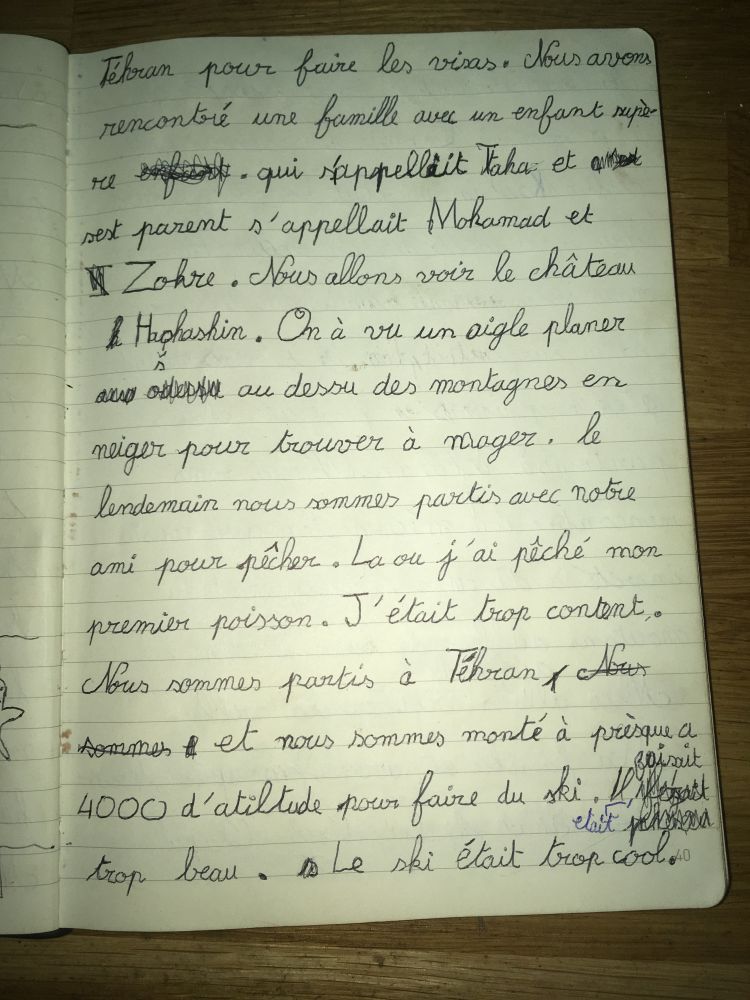 Téhran pour faire les visas. Nous avons
rencontré une famille avec un enfant supè-
re . qui s'appellait Taha et
sest parent s'appellait Mohamad et
Zohre. Nous allons voir le château
Hachashin. On à vu un aigle planer
au dessu des montagnes en
neiger pour trouver à mager. le
lendemain nous sommes partis avec notre
ami pour pêcher. La ou j'ai pêché mon
premier poisson. J'était trop content.
Nous sommes partis à Téhran, Nous
sommes et nous sommes monté à prèsque a
4000 d'atiltude pour faire du ski. Il
faisait
etait
trop beau. Le ski était trop cool.
40